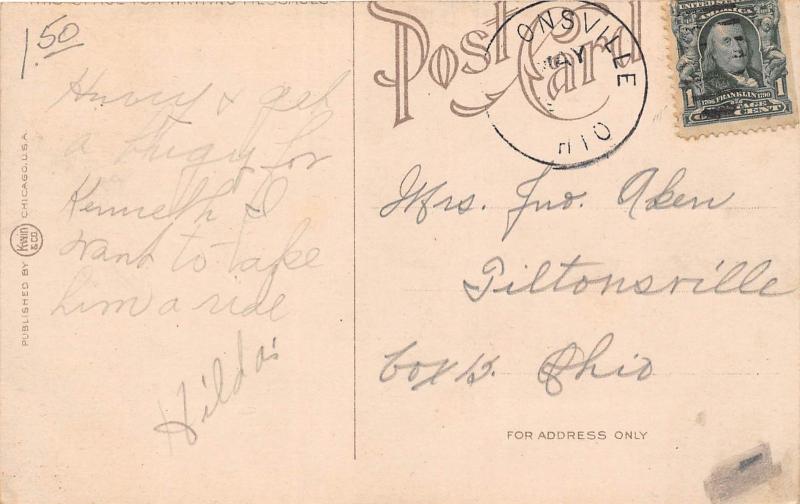 THIS SPACE FOR WRITING MESSAGES
1.50
Hurry & get
a bugy for
Kenneth I
want to take
him a ride
Hilda
PUBLISHED BY KWIN & CO. CHICAGO, U.S.A.
Post Card
ONSVILLE
MAY
HIO
UNITED STATES
AMERICA
1706 FRANKLIN 1790
1 CENT
Mrs. Jno. Aken
Tiltonsville
Box 15. Ohio
FOR ADDRESS ONLY